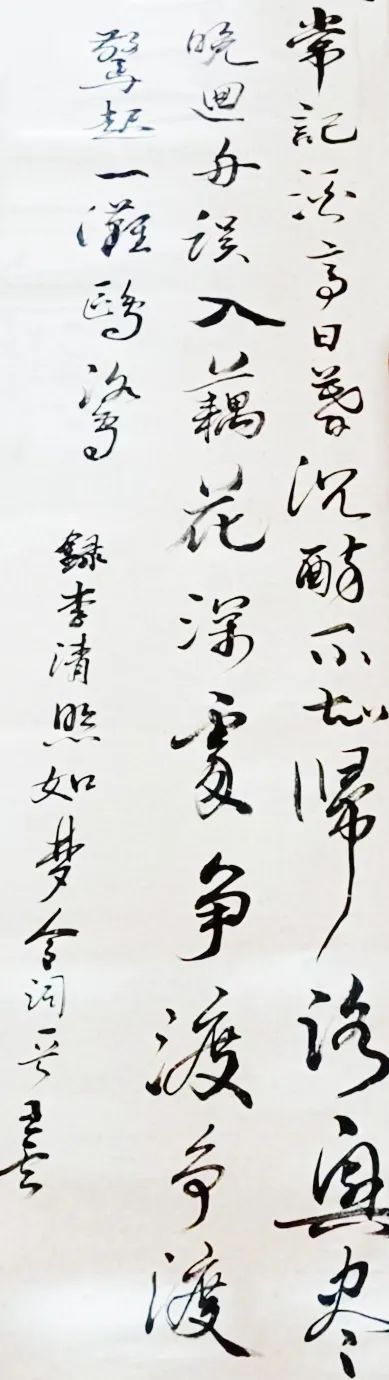 常記溪亭日暮沉醉不知歸路興盡
晚迴舟誤入藕花深處争渡争渡
驚起一灘鷗鷺
錄李清照如梦令詞一首